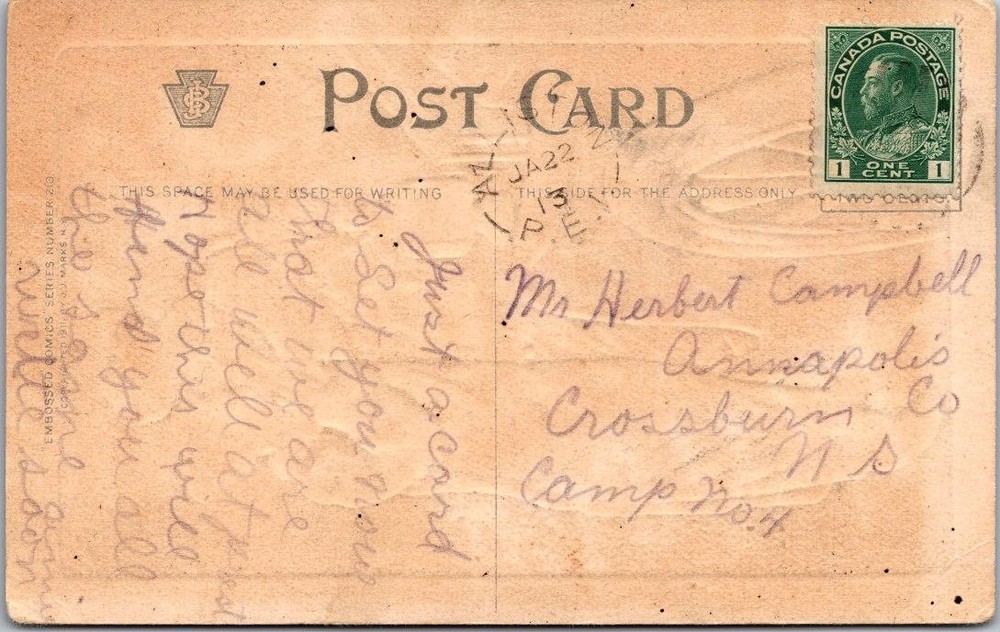 POST CARD
CANADA POSTAGE
1 ONE CENT 1
JA 22
13
P.E.I
THIS SPACE MAY BE USED FOR WRITING
THIS SIDE FOR THE ADDRESS ONLY
EMBOSSED COMICS, SERIES NUMBER 20
Just a card
to let you now
that we are
all well at
Hope this will
find you all
the same
write soon
Mr Herbert Campbell
Annapolis
Crossburn Co
N S
Camp No. 4